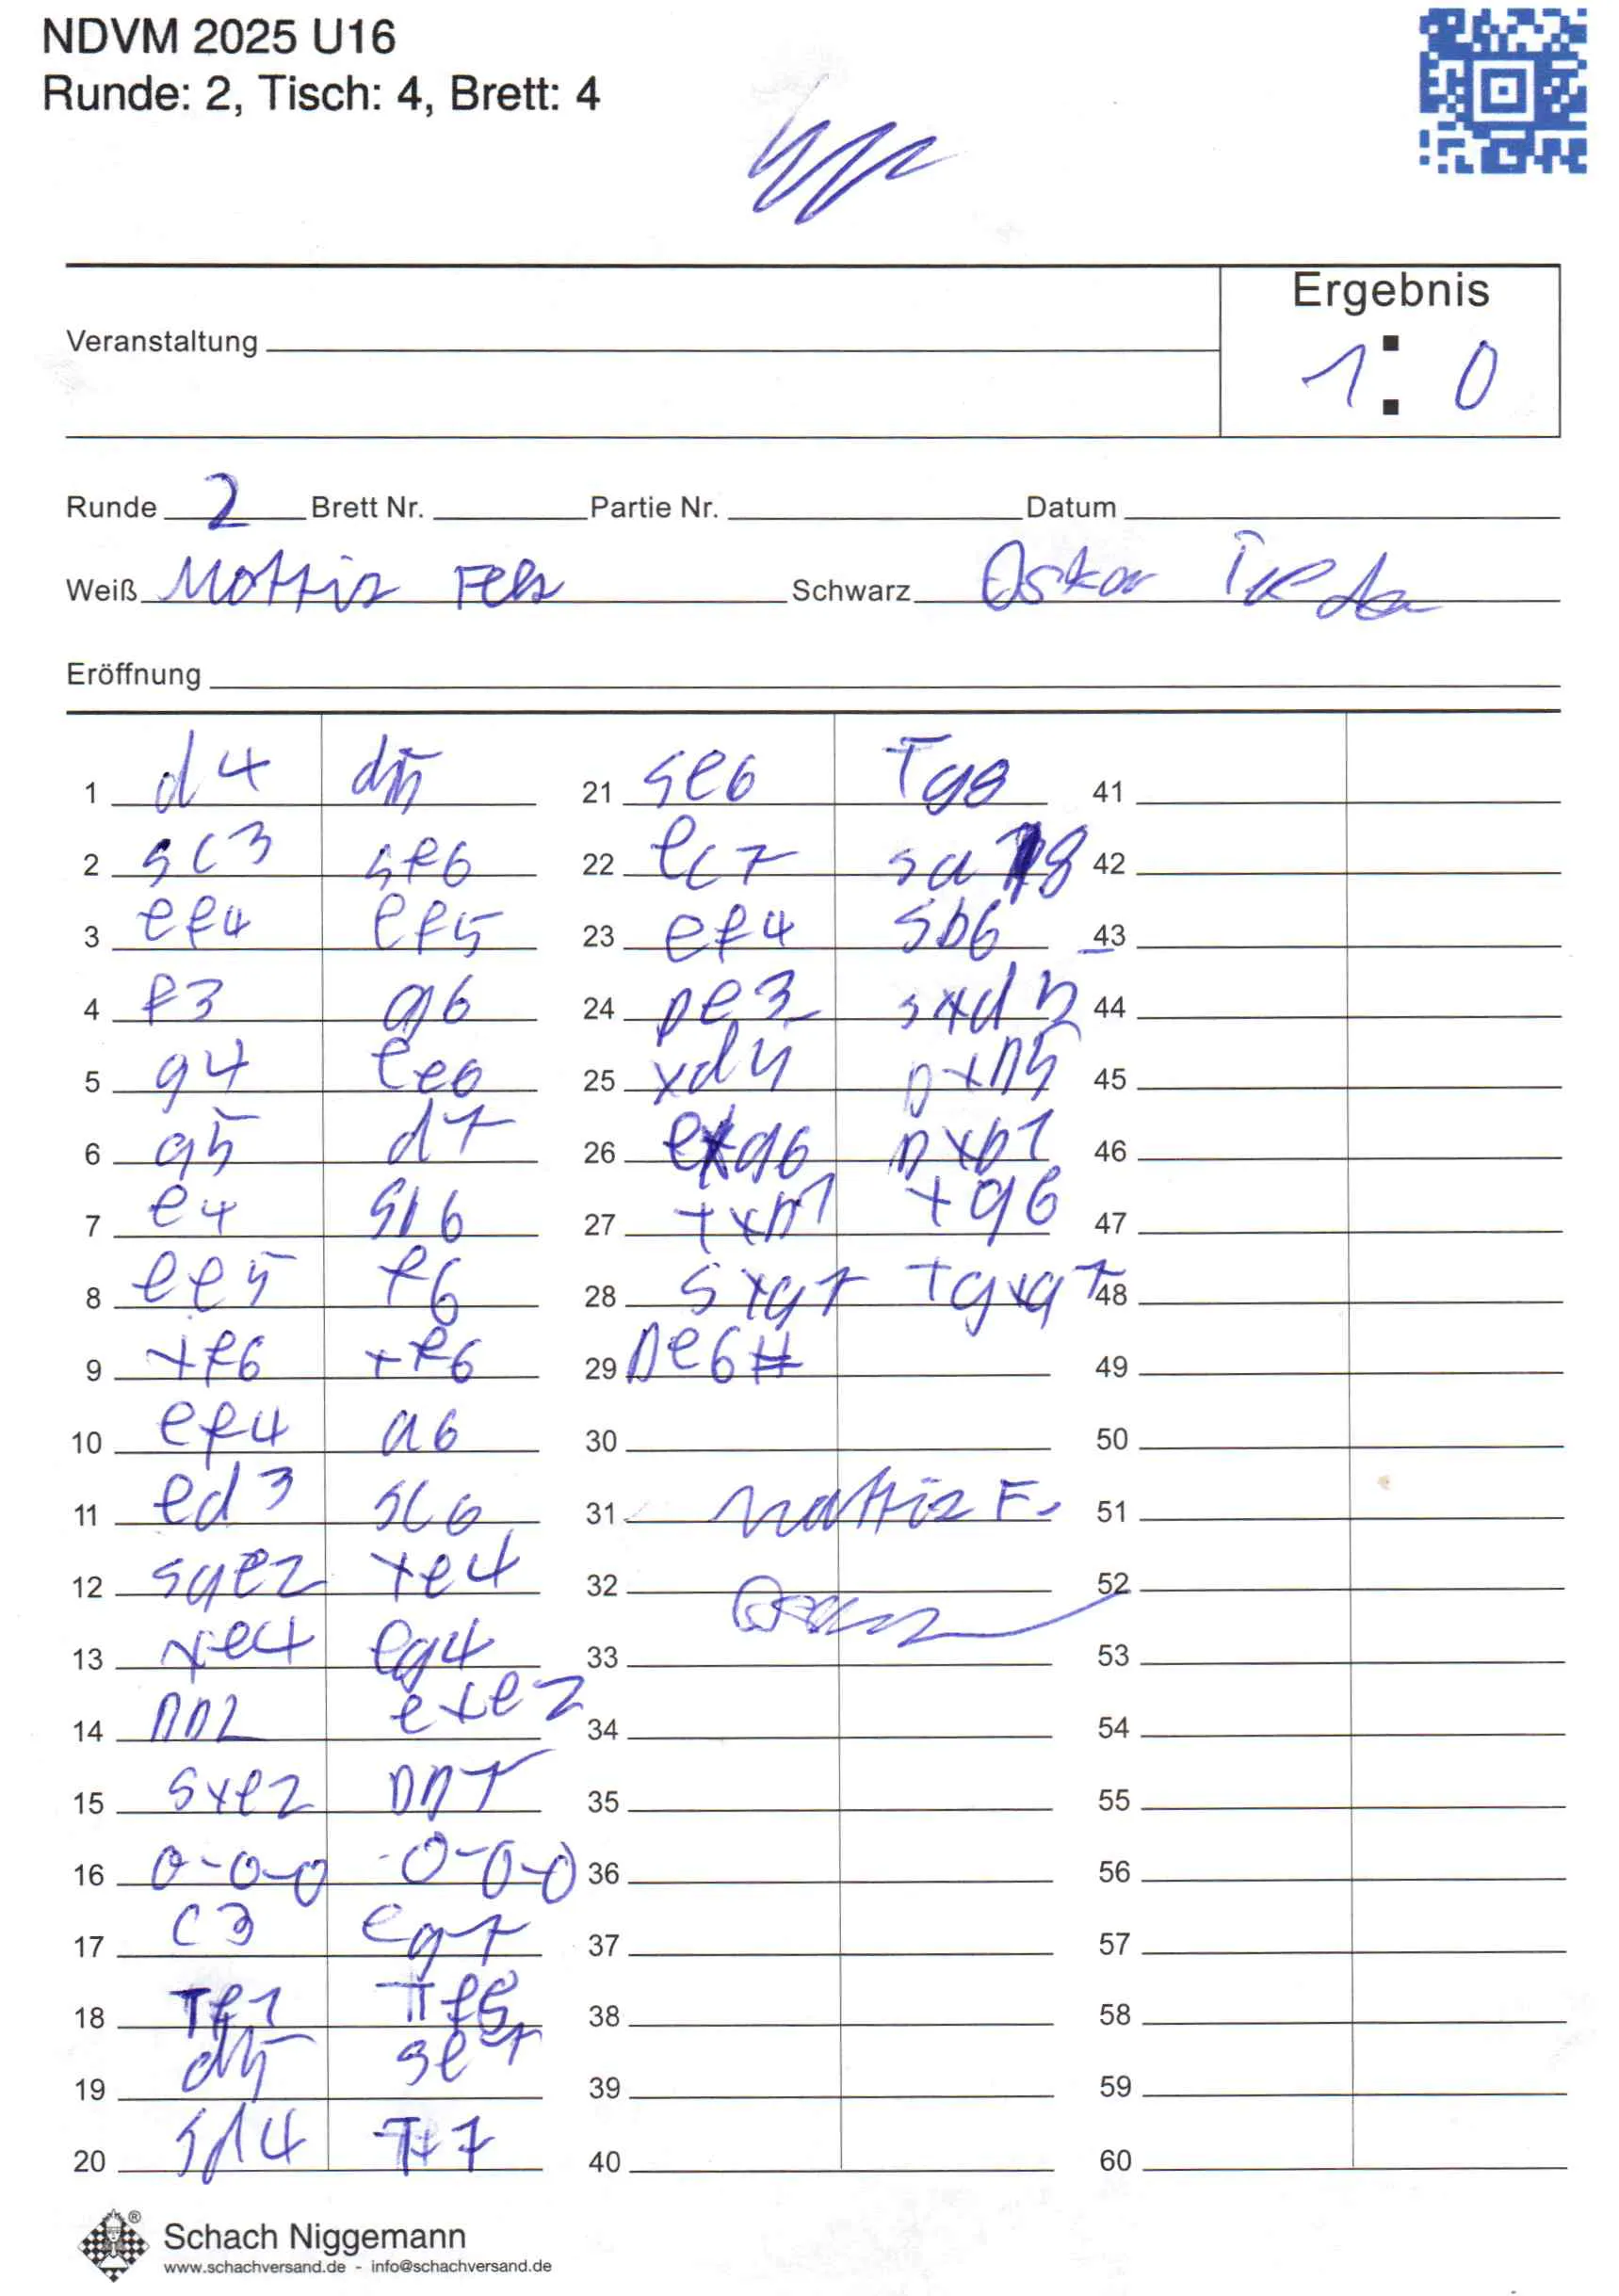 NDVM 2025 U16
Runde: 2, Tisch: 4, Brett: 4
Ergebnis
1 : 0
Veranstaltung
Runde 2 Brett Nr. Partie Nr. Datum
Weiß Mattis Schwarz Oskar
Eröffnung
1 d4 d5 21 se6 Tg8 41
2 sc3 sf6 22 lc7 sa8 42
3 ef4 ef5 23 ef4 sb6 43
4 f3 g6 24 De3 sxd5 44
5 g4 ee6 25 xd5 Dxd5 45
6 g5 d7 26 exa6 Dxb1 46
7 e4 sb6 27 txd1 xg6 47
8 ee5 f6 28 sxg7 Tgxg7 48
9 xf6 xf6 29 De6# 49
10 ef4 a6 30 50
11 ed3 sc6 31 Mattis F. 51
12 sge2 xe4 32 52
13 xe4 eg4 33 53
14 DD2 exe2 34 54
15 sxe2 DD7 35 55
16 0-0-0 0-0-0 36 56
17 c3 eg7 37 57
18 Tf1 Tf8 38 58
19 d5 se7 39 59
20 sd4 Tf7 40 60
Schach Niggemann
www.schachversand.de - info@schachversand.de